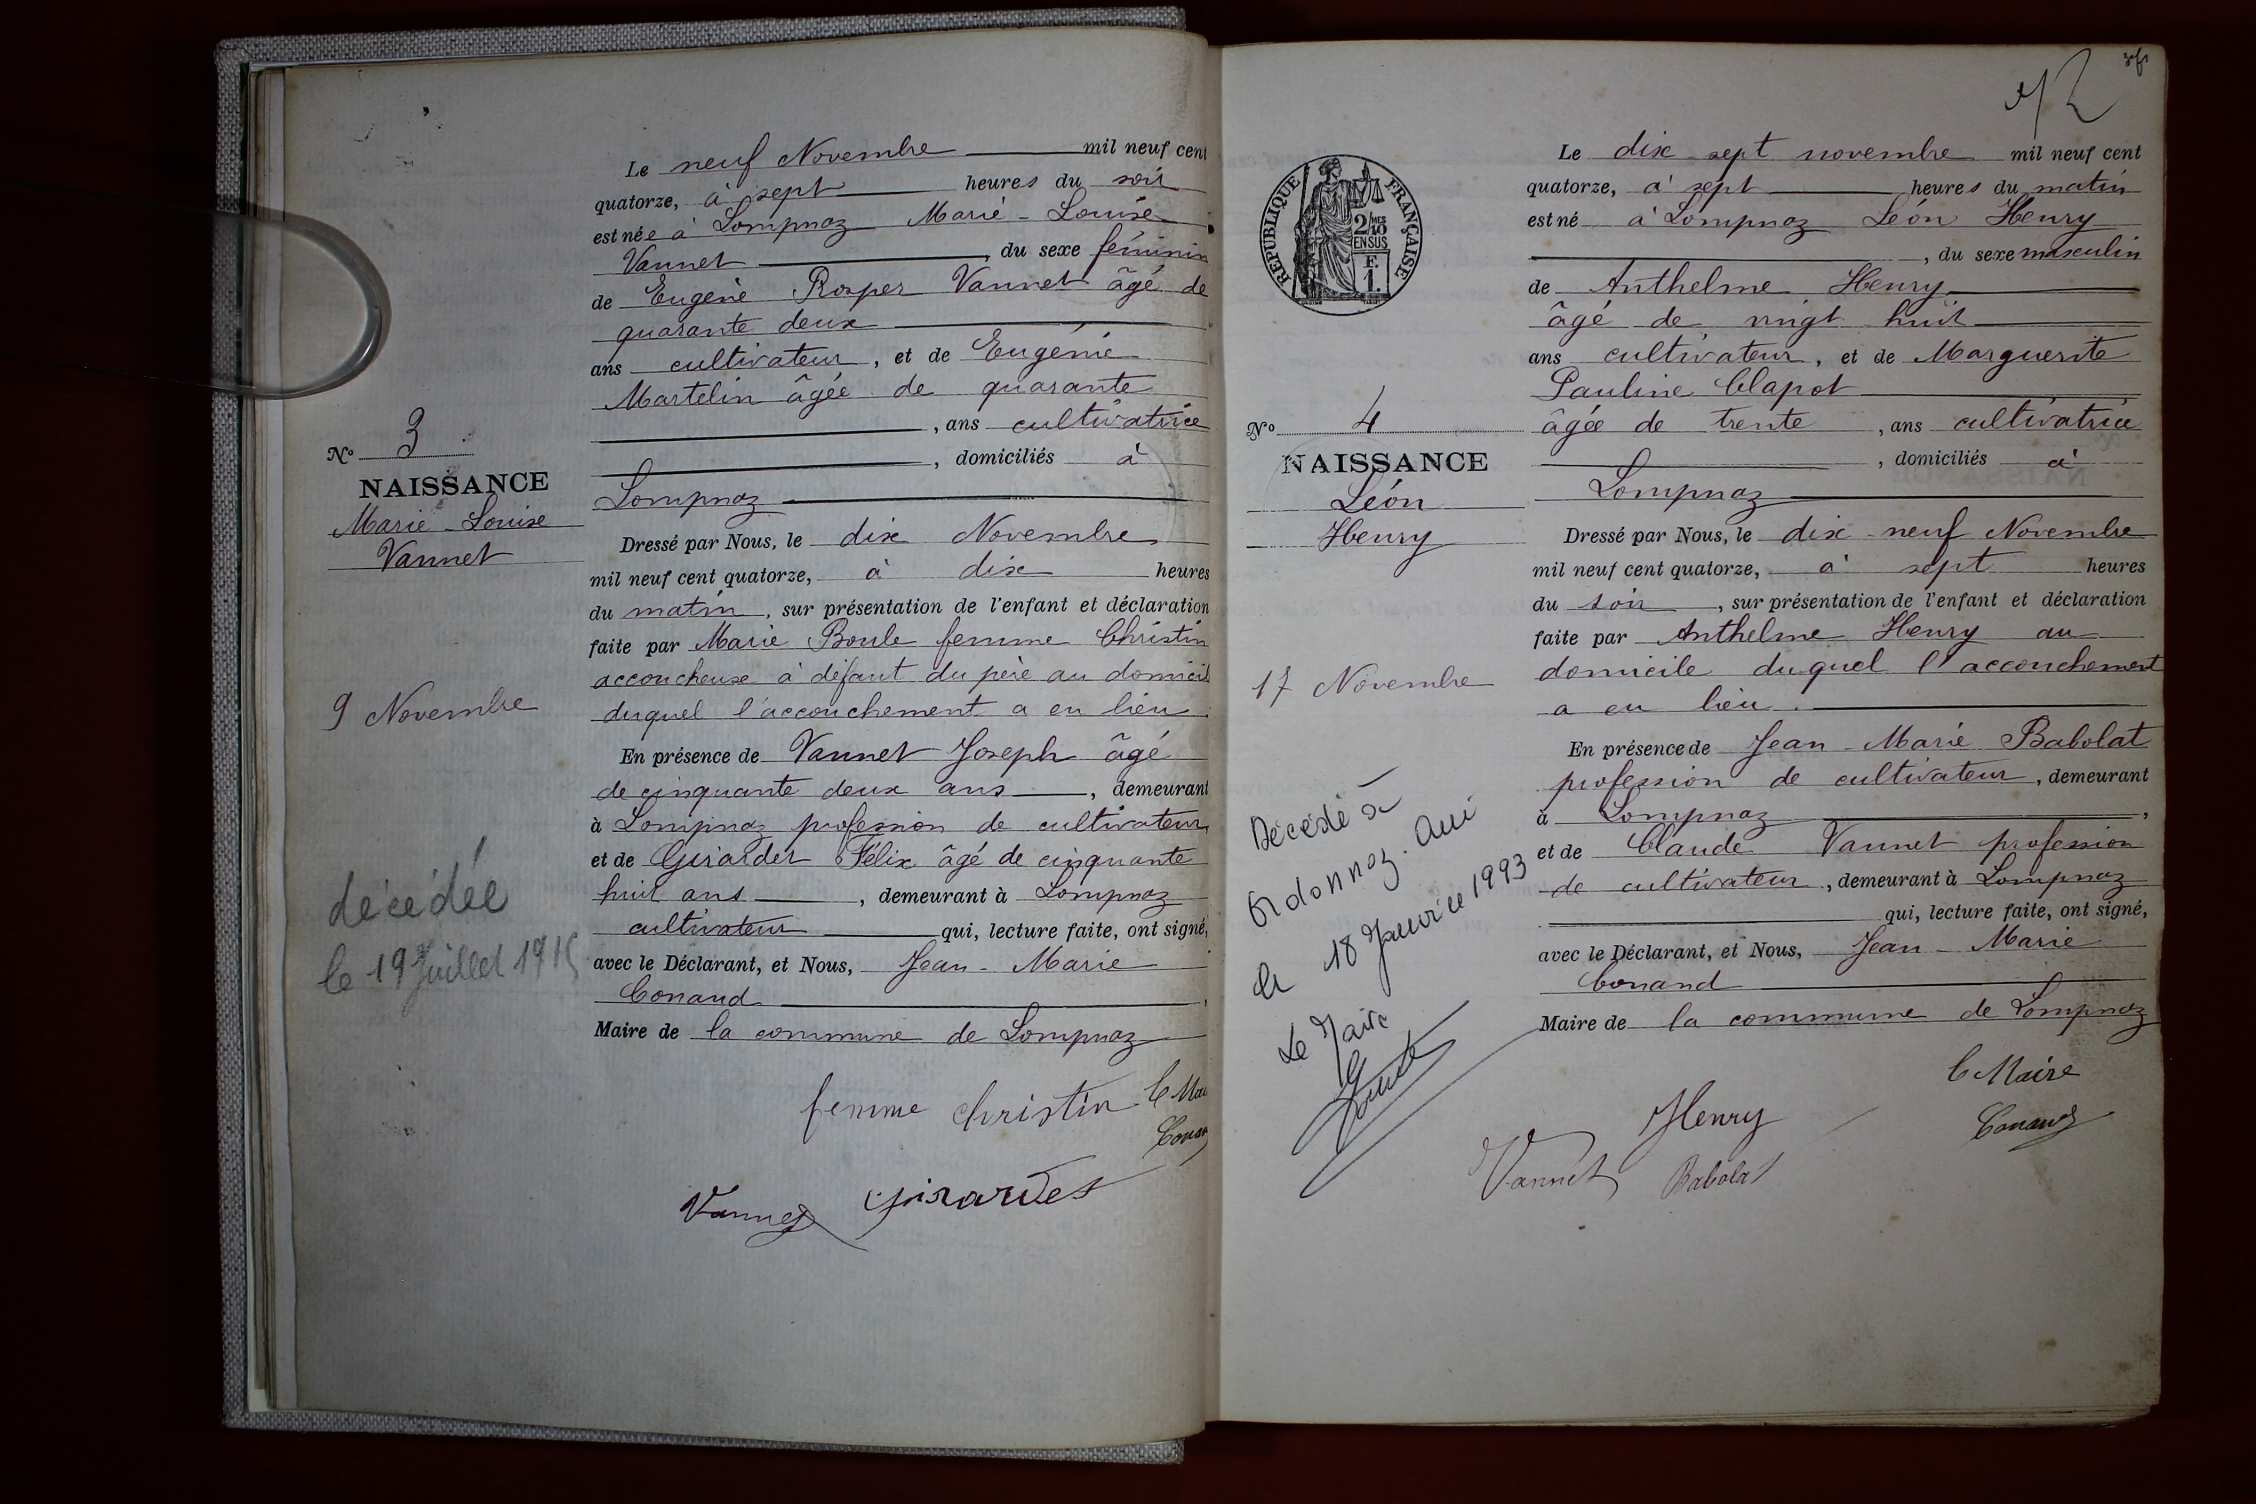 Le neuf Novembre mil neuf cent
quatorze, à sept heures du soir
est née à Lompnaz Marie-Louise
Vannet , du sexe féminin
de Eugène Prosper Vannet âgé de
quarante deux
ans cultivateur, et de Eugénie
Martelin âgée de quarante
, ans cultivatrice
, domiciliés à
Lompnaz
Nº 3
NAISSANCE
Marie-Louise
Vannet
Dressé par Nous, le dix Novembre
mil neuf cent quatorze, à dix heures
du matin, sur présentation de l'enfant et déclaration
faite par Marie Boule femme Christin
accoucheuse à défaut du père au domicil
duquel l'accouchement a eu lieu
9 Novembre
En présence de Vannet Joseph âgé
de cinquante deux ans, demeurant
à Lompnaz profession de cultivateur
et de Girardet Félix âgé de cinquante
huit ans, demeurant à Lompnaz
cultivateur qui, lecture faite, ont signé,
avec le Déclarant, et Nous, Jean-Marie
Conand
Maire de la commune de Lompnaz
décédée
le 19 Juillet 1915
femme christin
le Mai
Conan
Vannet
Girardet
Le dix sept novembre mil neuf cent
quatorze, à sept heures du matin
est né à Lompnaz Léon Henry
, du sexe masculin
de Anthelme Henry
âgé de vingt huit
ans cultivateur, et de Marguerite
Pauline Clapot
âgée de trente , ans cultivatrice
, domiciliés à
Lompnaz
RÉPUBLIQUE FRANÇAISE
2/10MES
EN SUS
F.
1.
Nº 4
NAISSANCE
Léon
Henry
Dressé par Nous, le dix-neuf Novembre
mil neuf cent quatorze, à sept heures
du soir, sur présentation de l'enfant et déclaration
faite par Anthelme Henry au
domicile duquel l'accouchement
a eu lieu.
17 Novembre
En présence de Jean-Marie Babolat
profession de cultivateur, demeurant
à Lompnaz ,
et de Claude Vannet profession
de cultivateur, demeurant à Lompnaz
qui, lecture faite, ont signé,
avec le Déclarant, et Nous, Jean-Marie
Conand
Maire de la commune de Lompnaz
Décédé à
Ordonnaz. Ain
le 18 Janvier 1993
Le Maire
le Maire
Conand
Henry
Vannet
Babolat